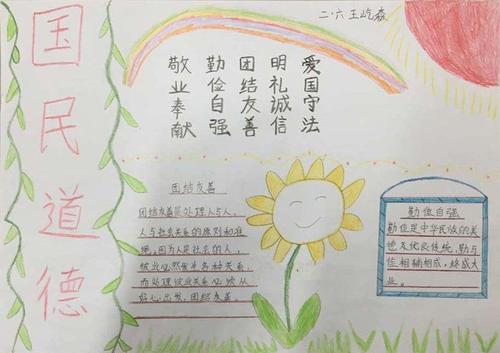 国民道德
二·六 王屹森
爱国守法
明礼诚信
团结友善
勤俭自强
敬业奉献
团结友善
团结友善是处理人与人,
人与社会关系的原则和准
绳,因为人是社会的人,
彼此必然发生各种关系,
而处理彼此关系必须从
好心出发,团结友善。
勤俭自强
勤俭是中华民族的美
德及优良传统,勤与
俭相辅相成,终成大
业。